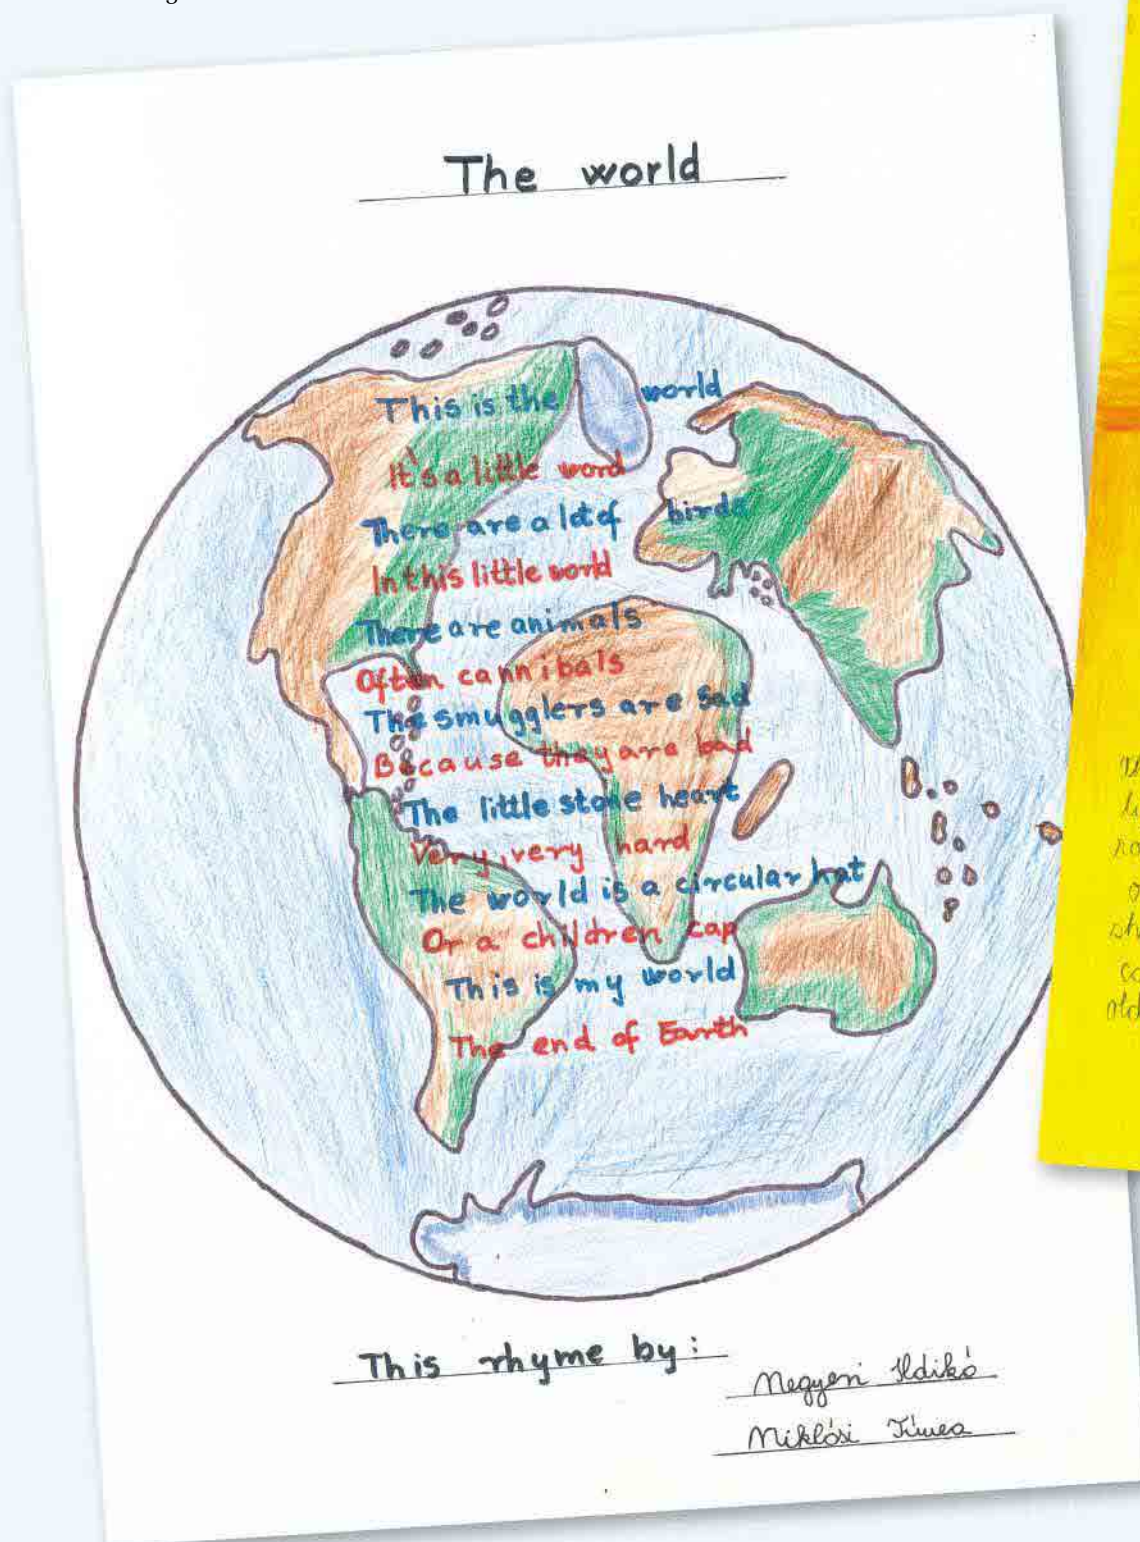 The world
This is the world
It's a little word
There are a lot of birds
In this little world
There are animals
Often cannibals
The smugglers are sad
Because they are bad
The little stone heart
Very, very hard
The world is a circular hat
Or a children cap
This is my world
The end of Earth
This rhyme by:
Megyeri Ildikó
Miklósi Tímea